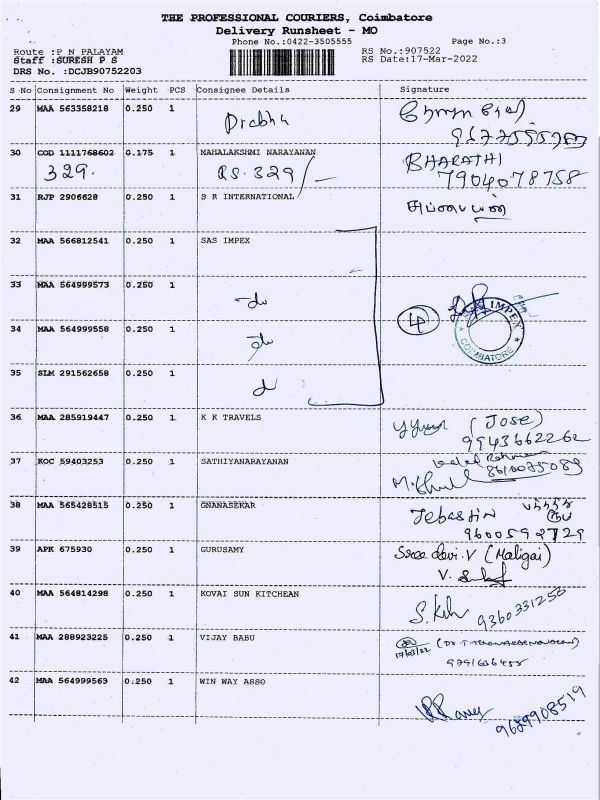 THE PROFESSIONAL COURIERS, Coimbatore
Delivery Runsheet - MO
Phone No.:0422-3505555 Page No.:3
Route :P N PALAYAM RS No.:907522
Staff :SURESH P S RS Date:17-Mar-2022
DRS No. :DCJB90752203
S No Consignment No Weight PCS Consignee Details Signature
29 MAA 563358218 0.250 1 Prabhu
30 COD 1111768602 0.175 1 MAHALAKSHMI NARAYANAN BHARATHI
329. RS. 329/- 7904078758
31 RJP 2906628 0.250 1 S R INTERNATIONAL
32 MAA 566812541 0.250 1 SAS IMPEX
33 MAA 564999573 0.250 1 -do
4 IMPEX
COIMBATORE
34 MAA 564999558 0.250 1 do
35 SLM 291562658 0.250 1 d
36 MAA 285919447 0.250 1 K K TRAVELS (JOSE)
9943662262
37 KOC 59403253 0.250 1 SATHIYANARAYANAN
8610075089
38 MAA 565428515 0.250 1 GNANASEKAR Jebastin
9600592729
39 APK 675930 0.250 1 GURUSAMY Sree devi.V (Maligai)
40 MAA 564814298 0.250 1 KOVAI SUN KITCHEAN 9360331250
41 MAA 288923225 0.250 1 VIJAY BABU
17/03/22
42 MAA 564999563 0.250 1 WIN WAY ASSO
9629908519